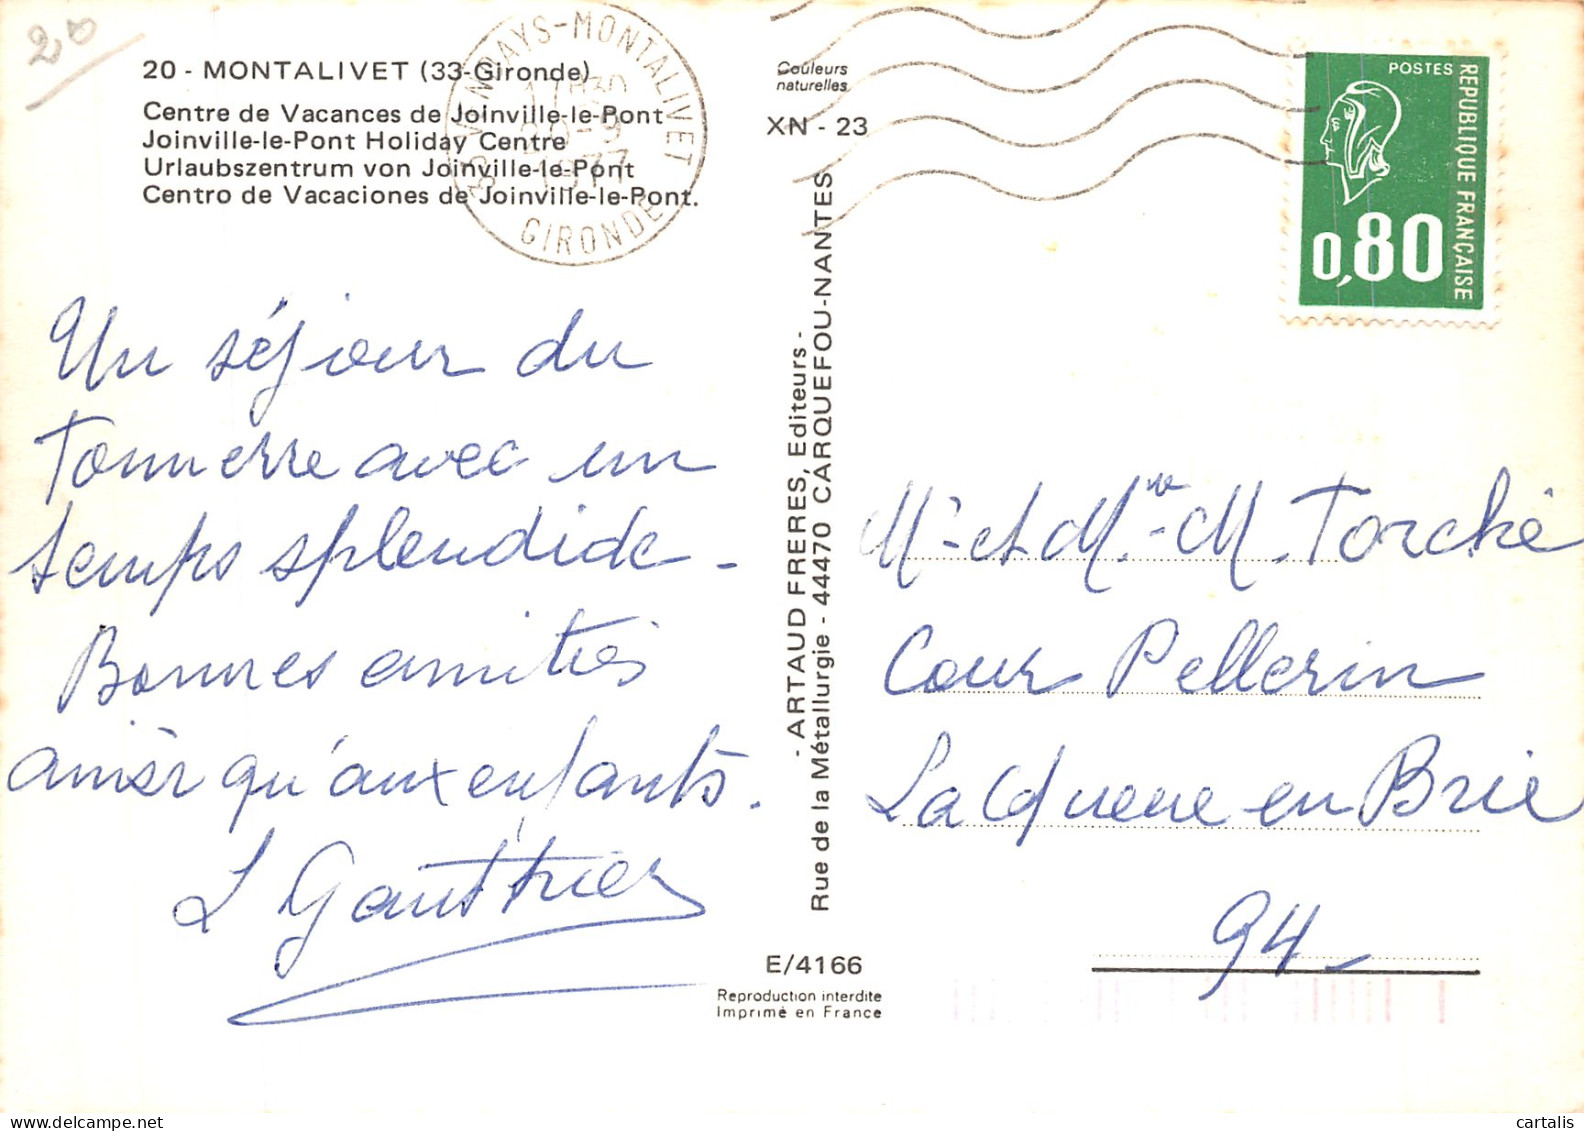 20
20 - MONTALIVET (33-Gironde)
Centre de Vacances de Joinville-le-Pont
Joinville-le-Pont Holiday Centre
Urlaubszentrum von Joinville-le-Pont
Centro de Vacaciones de Joinville-le-Pont.
33 VENDAYS-MONTALIVET
GIRONDE
Couleurs
naturelles
XN - 23
POSTES
REPUBLIQUE FRANÇAISE
0,80
Un séjour du
Tonnerre avec un
temps splendide -
Bonnes amitiés
ainsi qu'aux enfants.
L Gauthier
- ARTAUD FRERES, Editeurs -
Rue de la Métallurgie - 44470 CARQUEFOU-NANTES
E/4166
Reproduction interdite
Imprimé en France
Mr et Mme M. Torché
Cour Pellerin
La Queue en Brie
94 -
cartalis